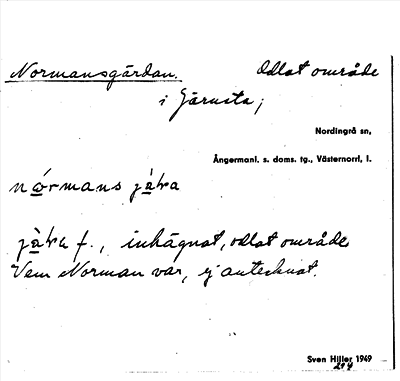 Normansgärdan. Odlat område
i Järnsta;
Nordingrå sn,
Ångermanl. s. doms. tg., Västernorrl. l.
nórmans
f., inhägnat, odlat område
Vem Norman var, ej antecknat.
Sven Hiller 1949